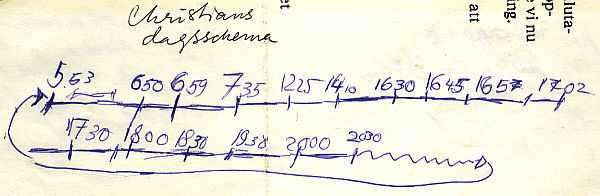 Christians
dagsschema
et
luta-
pp-
e vi nu
ng.
att
5.53 650 659 735 1225 1410 1630 1645 1657 1702
1730 1800 1830 1938 2000 2030